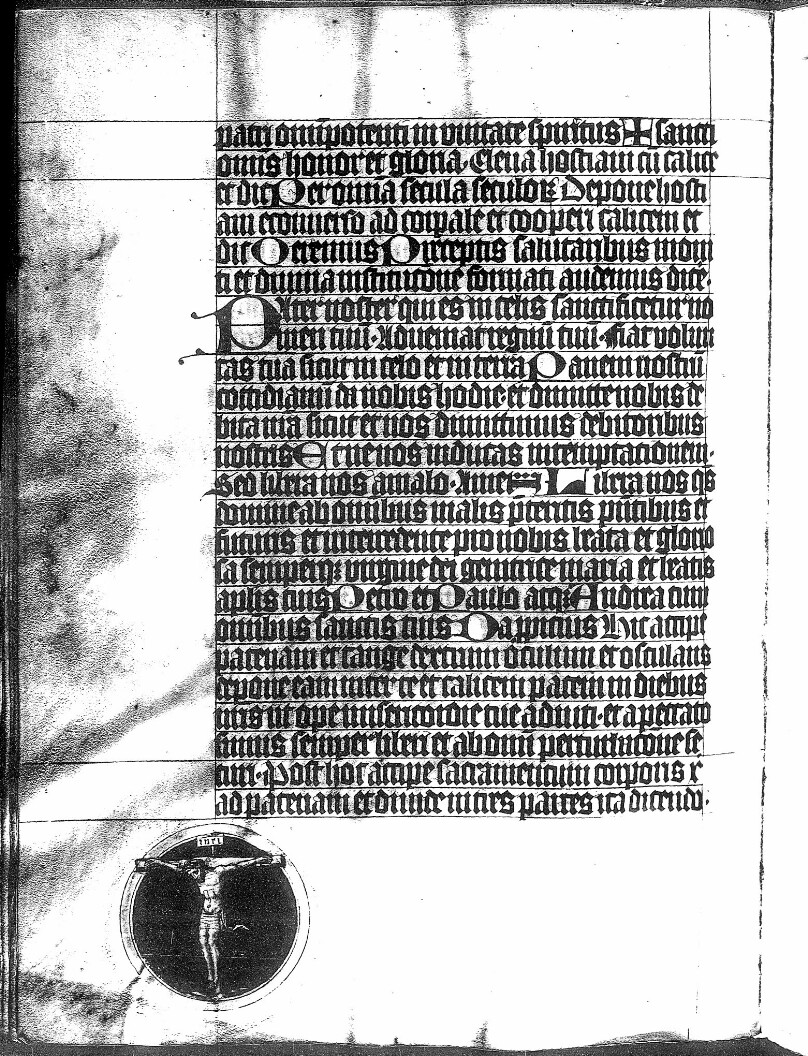 patri om̄ipotenti in vnitate spiritus ✠ sancti
omnis honor et gloria. Eleua hostiam cū calice
et dic Per omnia secula seculoꝝ Depone hosti
am econuerso ad corpale et cooperi calicem et
dic Oremus Preceptis salutaribus moni
ti et diuina institucōne formati audemus dicē·
Pater noster qui es in celis sanctificetur no
men tuū· Adueniat regnū tuū· Fiat volun
tas tua sicut in celo et in terra Panem nostrū
cottidianū da nobis hodie· et dimitte nobis de
bita nr̄a sicut et nos dimittimus debitoribus
nostris Et ne nos inducas in temptationem·
Sed libera nos a malo· Amen Libera nos qs̄
domine ab omnibus malis p̄teritis p̄ntibus et
futuris et intercedente pro nobis beata et glorio
sa semperqꝫ virgine dei genitrice maria et beatis
ap̄lis tuis Petro et Paulo atqꝫ Andrea cum
omnibus sanctis tuis Da ppicius Hic accipe
patenam et tange dextrum oculum et osculans
depone eam inter te et calicem pacem in diebus
nr̄is vt ope misericordie tue adiuti· et a peccato
simus semper liberi et ab omni perturbacōne se
curi· Post hoc accipe sacramentum corporis x
ad patenam et diuide in tres partes ita dicendo·
INRI